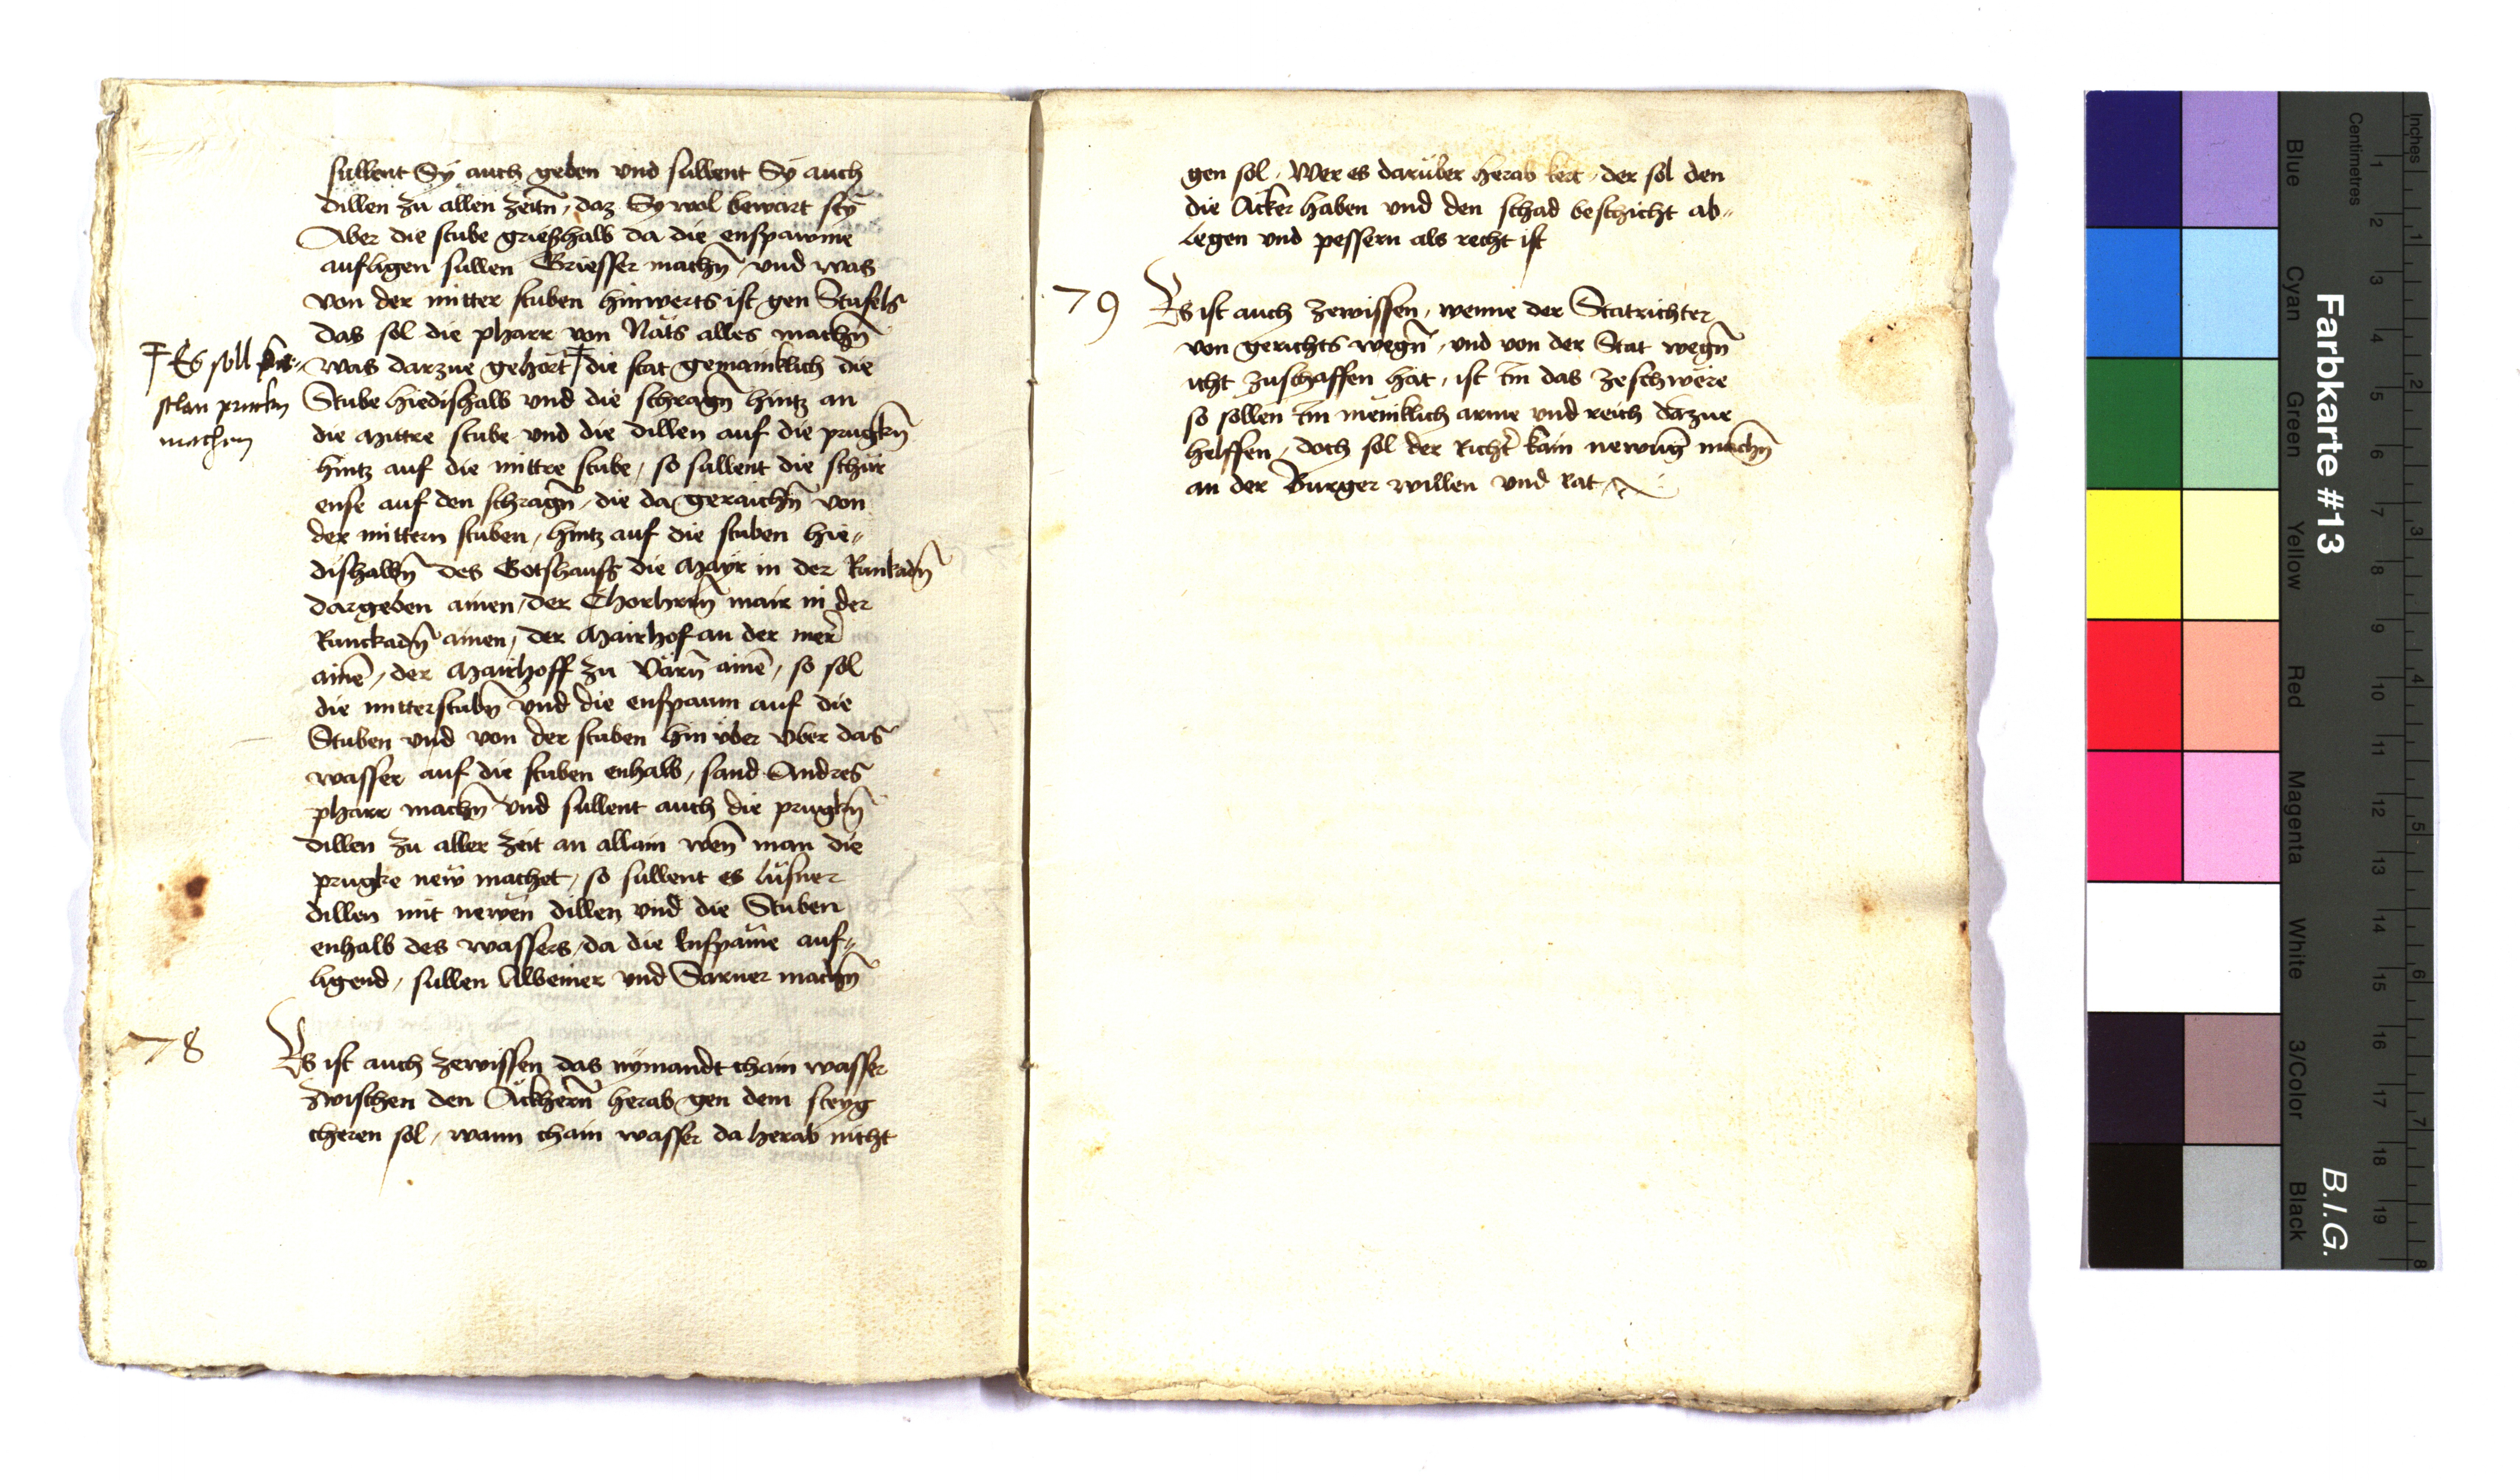 sullent Sÿ auch geben vnd sullent Sÿ auch
dillen zu allen zeitn̄, daz Sy wol bewart seÿ
Aber die stube grieshalb da die enspawme
aufligen sullen Griesser machn̄, vnd was
von der mitter stuben hinwerts ist gen Stufels
das sol die pharr von Näts alles machn̄
was darzue gehört die stat gemainklich die
Stube hiedishalb vnd die schragn̄ hintz an
die Mittre stube vnd die dillen auf die prugkn̄
hintz auf die mittre stube, so sullent die schur
ense auf den schragn̄, die da geraichn̄ von
der mittern stuben, hintz auf die stuben hie„
dishalbn̄ des Gotshauss die Mayr in der Runkadn̄
dargeben ainen, der Chorhern̄ mair in der
Runckadn̄ ainen, der Mairhof an der mer
ainē, der Mairhoff zu Värn̄ ainē, so sol
die mitterstubn̄ vnd die enspaum auf die
Stuben vnd von der stuben hin vber vber das
wasser auf die stuben enhalb, sand Andres
pharr machn̄ vnd sullent auch die prugkn̄
dillen zu aller zeit an allain wen̄ man die
prugke new machet, so sullent es lüsner
dillen mit newen dillen vnd die Stuben
enhalb des wassers, da die Enspäme auf„
ligend, sullen Albeiner vnd Sarner machn̄
Es soll
prucken
machen
78
Es ist auch zewissen das nymandt chain wasser
zwischen den Äckhern̄ herab gen dem steyg
cheren sol, wann chain wasser da herab nicht
gen sol, Wer es darüber herab kert, der sol den
die Äcker haben vnd den schad beschicht ab„
legen vnd pessern als recht ist
79
Es ist auch zewissen, wenne der Statrichter
von gerichts wegn̄, vnd von der Stat wegn̄
icht zuschaffen hat, ist im das zeschwëre
so sollen im mëniklich arme vnd reich darzue
helffen, doch sol der Richt' kain newung machn̄
an der Burger willen vnd Rat
Inches
Centimetres
1 2 3 4 5 6 7 8 9 10 11 12 13 14 15 16 17 18 19
1 2 3 4 5 6 7 8
Blue Cyan Green Yellow Red Magenta White 3/Color Black
Farbkarte #13
B.I.G.